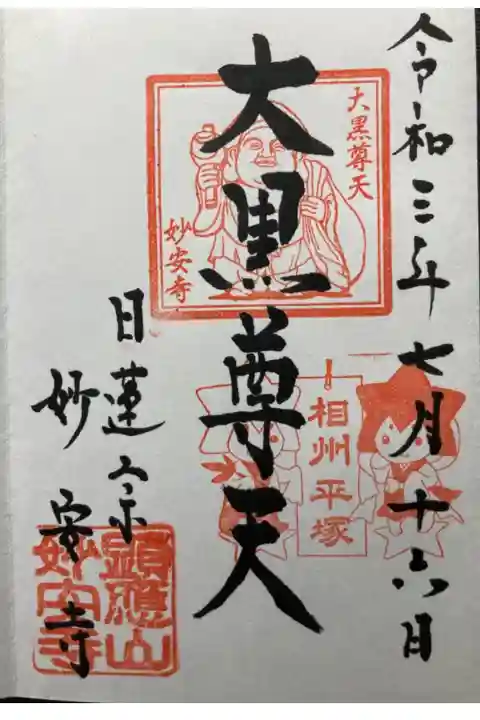 令和三年七月十六日
大黒尊天
妙安寺
相州平塚
大黒尊天
日蓮宗
妙安寺
顕應山
妙安寺